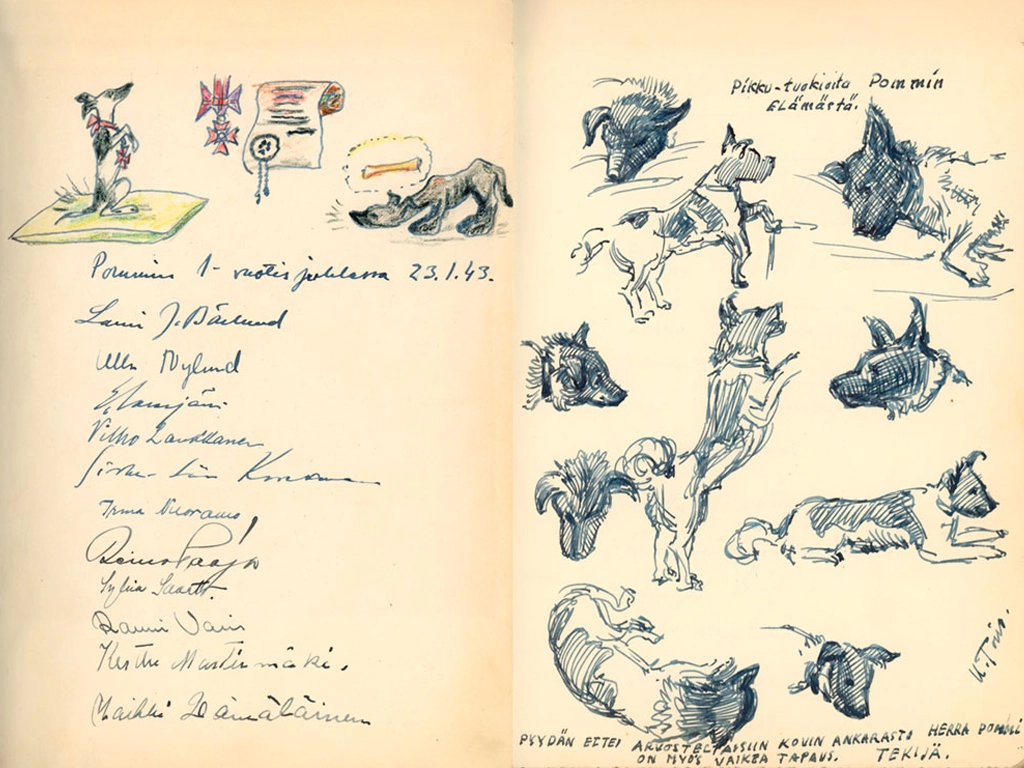 Pommin 1-vuotisjuhlassa 23.1.43.
Lauri J. Bärlund
Ulla Nylund
Vilho Laukkanen
Irma Nuoramo
Reino Paajo
Sylvia Saarto.
Rauni Vain
Kerttu Martinmäki.
Maikki Hämäläinen
Pikku-tuokioita Pommin
Elämästä.
K. Toivo.
PYYDÄN ETTEI ARVOSTELTAISIIN KOVIN ANKARASTI HERRA POMMI
ON MYÖS VAIKEA TAPAUS. TEKIJÄ.